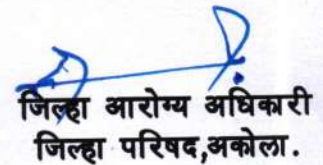 जिल्हा आरोग्य अधिकारी
जिल्हा परिषद,अकोला.